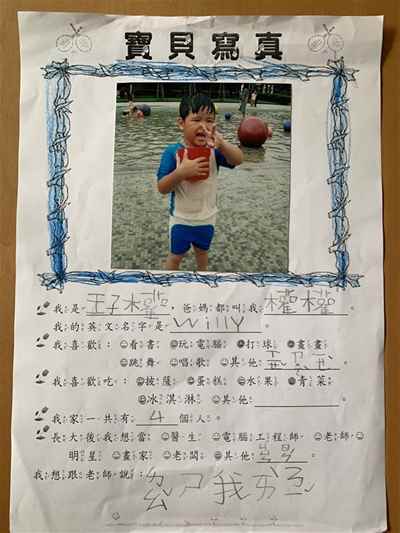 寶貝寫真
我是王子權，爸媽都叫我權權。
我的英文名字是willy。
我喜歡：看書 玩電腦 打球 畫畫
跳舞 唱歌 其他
我喜歡吃：披薩 蛋糕 水果 青菜
冰淇淋 其他
我家一共有4個人。
長大後我想當：醫生 電腦工程師 老師
明星 畫家 老闆 其他
我想跟老師說：我